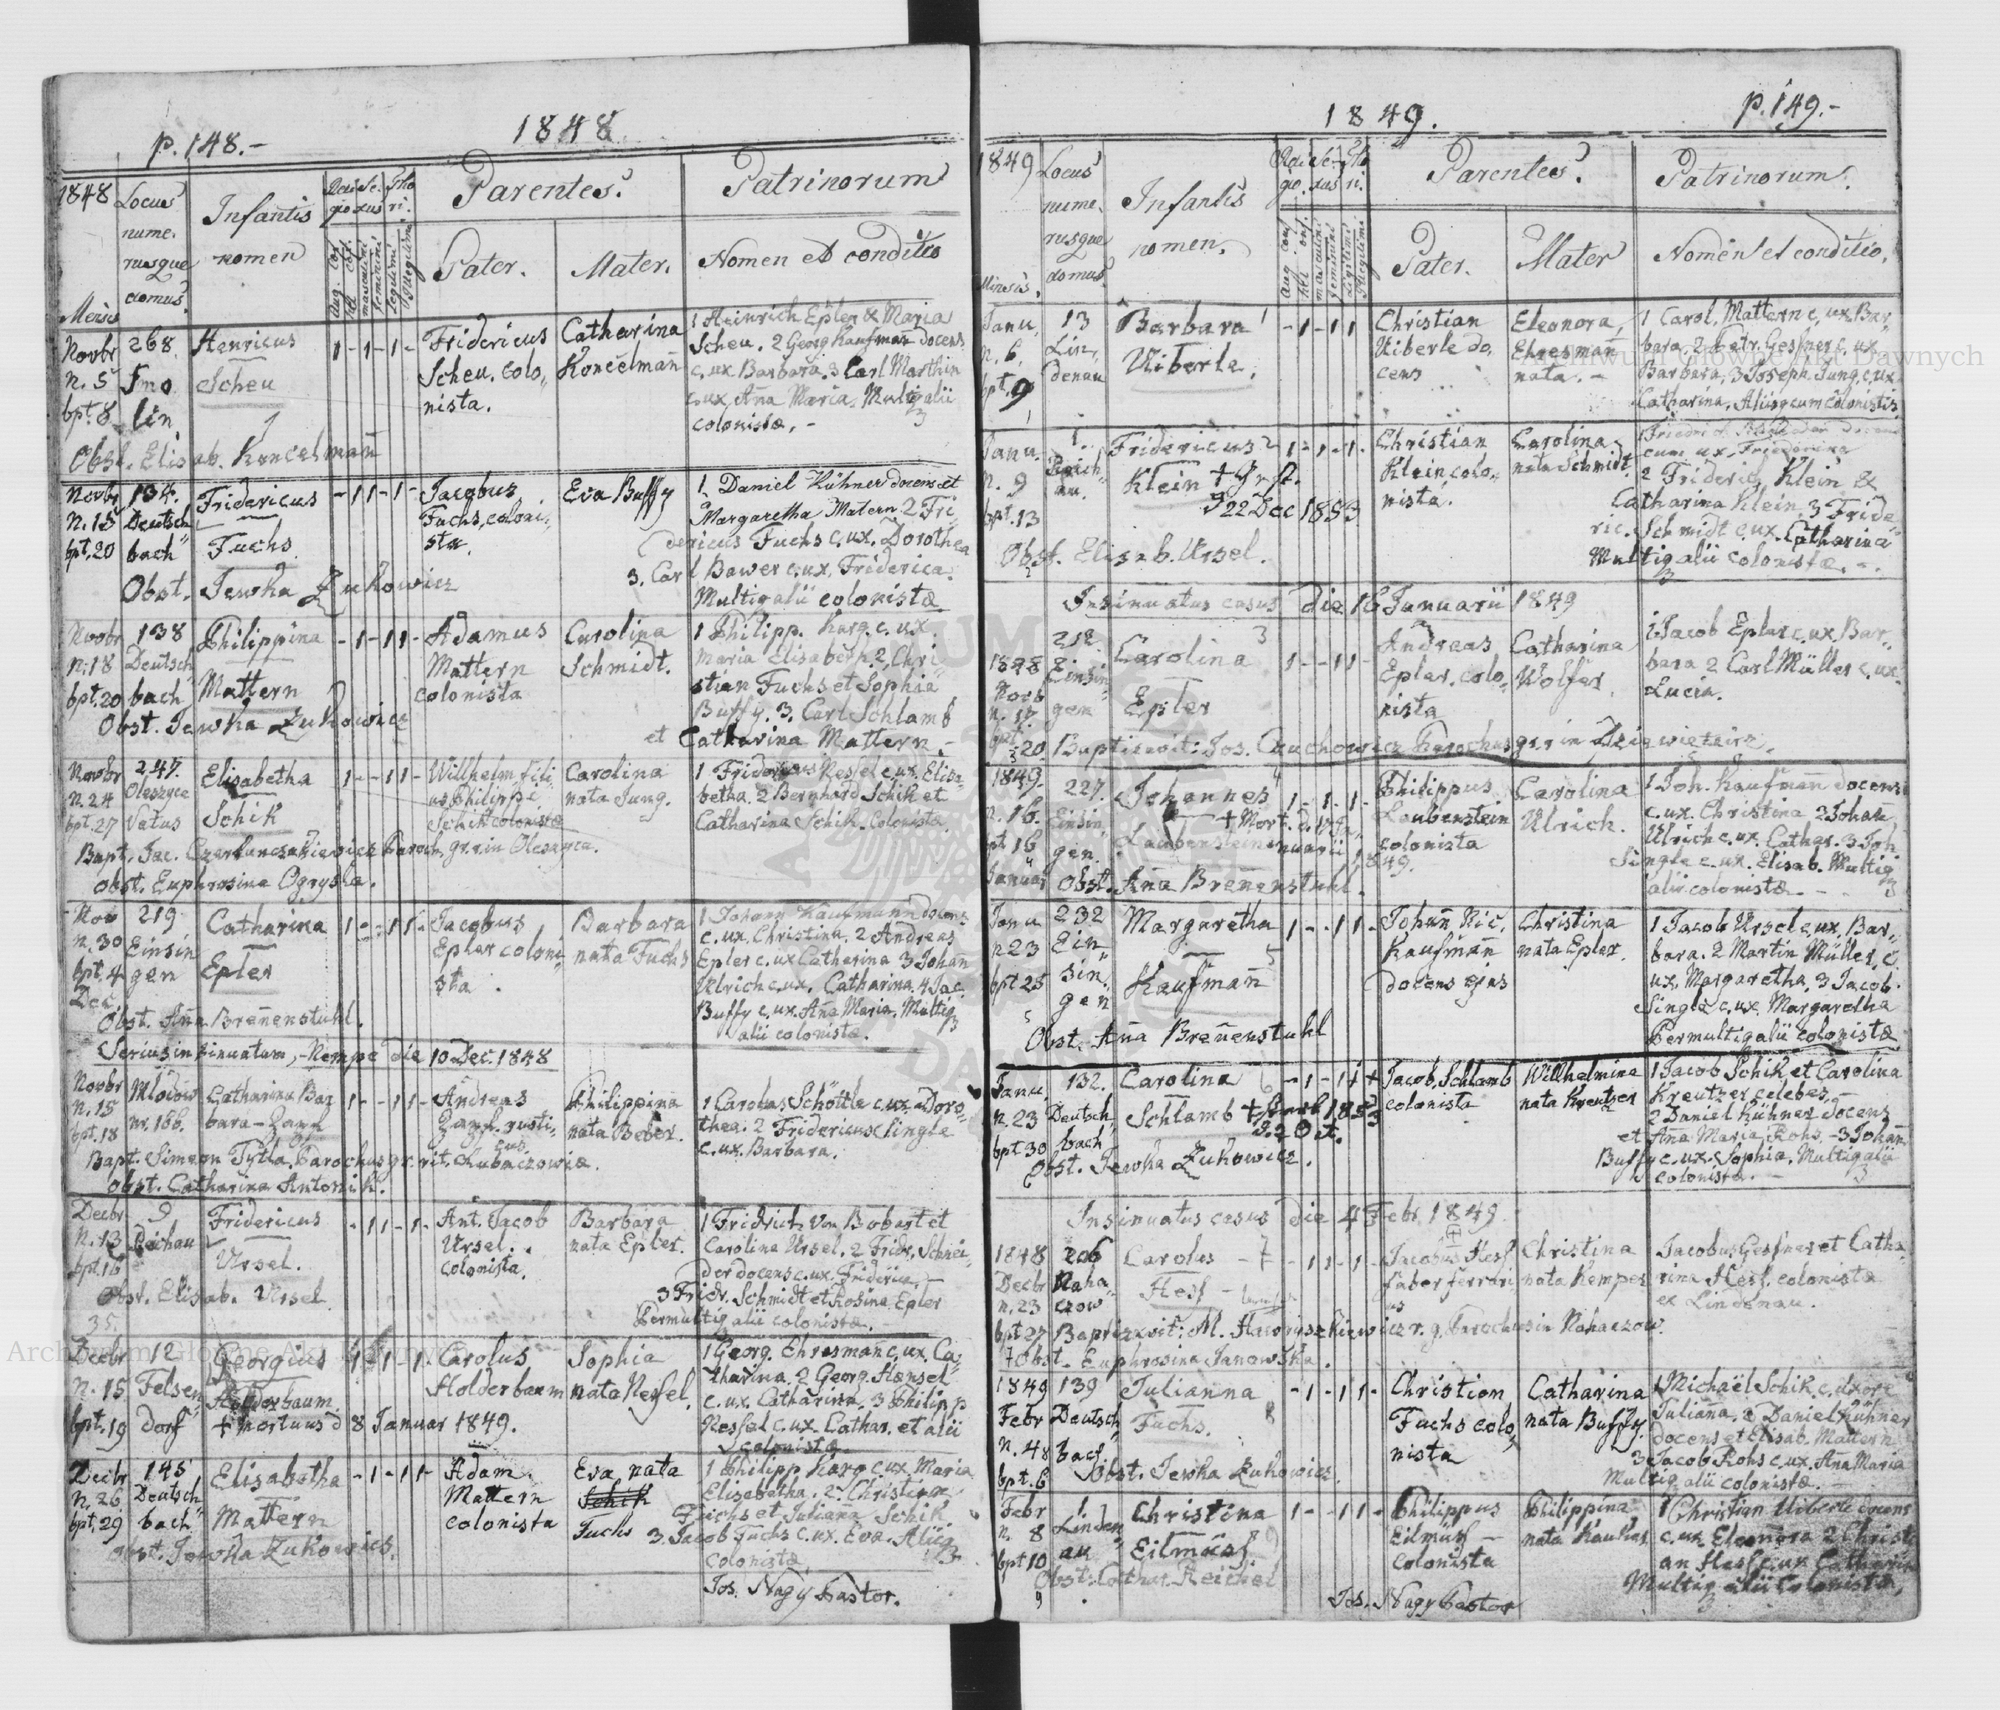 p. 148.-
1848
1848
Locus numerusque domus.
Infantis nomen
Religio
Sexus
Thori.
Parentes.
Patrinorum
Mensis
Aug. Conf.
Hel. Conf.
masculini
feminini
Legitimi
Illegitimi
Pater.
Mater.
Nomen et conditio
Novbr n. 5 bpt. 8
268. Smolin
Henricus Scheu 1
1 - 1 - 1 -
Fridericus Scheu, colonista.
Catharina Koncelmañ
1 Heinrich Epler & Maria
Scheu. 2 Georg Kaufmañ docens
c. ux Barbara. 3 Carl Marthin
c. ux. Aña Maria. Multiq alii
colonistæ. -
Obst. Elisab. Koncelmañ
Novbr n. 15 bpt. 20
134. Deutschbach
Fridericus Fuchs
- 1 1 - 1 -
Jacobus Fuchs, colonista.
Eva Buffy
1. Daniel Kühner docens et
Margaretha Matern 2 Fri-
dericus Fuchs c. ux. Dorothea
3. Carl Bawer c. ux. Friderica.
Multiq alii colonistæ
Obst. Jewka Żukowicz
Novbr n. 18 bpt. 20
138 Deutschbach
Philippina Mattern
- 1 - 1 1 -
Adamus Mattern colonista
Carolina Schmidt.
1 Philipp. Karg. c. ux.
Maria Elisabeth. 2. Chri-
stian Fuchs et Sophia
Buffy. 3. Carl Schlamb
et Catharina Mattern. -
Obst. Jewka Żukowicz
Novbr n. 24 bpt. 27
247. Oleszyce Vatus
Elisabetha Schik
1 - - 1 1 -
Willhelm filius Philippi Schik colonista
Carolina nata Jung.
1 Fridericus Ressel c. ux. Elisa-
betha. 2 Bernhard Schik et
Catharina Schik. Colonista.
Bapt. Jac. Paroch. gr. r. in Oleszyce.
Obst. Euphrosina Ogryska.
Nov n. 30 bpt. 4 Dec.
219 Einsingen
Catharina Epler
1 - - 1 1 -
Jacobus Epler colonista.
Barbara nata Fuchs
1 Johann Kaufmann docens
c. ux. Christina. 2 Andreas
Epler c. ux Catharina 3 Johañ
Ulrich c. ux. Catharina. 4 Jac.
Buffy c. ux. Aña Maria. Multiq
alii colonistæ.
Obst. Aña Breñenstuhl.
Serius insinuatum, - Nempe die 10 Dec. 1848
Novbr n. 15 bpt. 18
Młodow nr. 186.
Catharina Barbara - Zapf
1 - - 1 1 -
Andreas Zapf. rusticus.
Philippina nata Beber.
1 Carolus Schöttle c. ux. Doro-
thea. 2 Fridericus Single
c. ux. Barbara.
Bapt. Simeon Tytla. Parochus gr. rit. Lubaczowiæ.
Obst. Catharina Antonik.
Decbr n. 13 bpt. 16
9 Reichau
Fridericus Ursel.
- 1 1 - 1 -
Ant. Jacob Ursel. colonista.
Barbara nata Epler.
1 Fridrich von Bobart et
Carolina Ursel. 2 Fridr. Schnei-
der docens c. ux. Friderica. -
3 Fridr. Schmidt et Rosina Epler
Permultiq alii colonistæ. -
Obst. Elisab. Ursel
35.
Decbr n. 15 bpt. 19
12 Felsendorf
Georgius Holderbaum
1 - 1 - 1 -
Carolus Holderbaum
Sophia nata Ressel.
1 Georg. Ehresmañ c. ux. Ca-
tharina. 2 Georg. Hænsel
c. ux. Catharina. 3 Philipp
Ressel c. ux. Cathar. et alii
colonistæ.
+ mortuus d 8 Januar 1849.
Decbr n. 26. bpt. 29
145 Deutschbach
Elisabetha Mattern
- 1 - 1 1 -
Adam Mattern colonista
Eva nata Schik Fuchs
1 Philipp Karg c. ux. Maria
Elisabetha. 2. Christian
Fuchs et Juliaña Schik
3. Jacob Fuchs c. ux. Eva. Aliiq
colonistæ
Obst. Jewka Żukowicz.
Jos. Nagy Pastor.
1849.
p. 149.-
1849
Locus numerusque domus.
Infantis nomen.
Religio.
Sexus
Thori.
Parentes.
Patrinorum.
Mensis.
Aug. conf
Hel. conf.
masculini
feminini
Legitimi
Illegitimi
Pater.
Mater
Nomen et conditio.
Janu. n. 6. bpt. 9
13 Lindenau
Barbara Uiberle. 1
- 1 - 1 1
Christian Uiberle docens
Eleonora, Ehresmañ nata. -
1 Carol. Mattern c. ux Bar-
bara. 2 Petr. Gesfner c. ux
Barbara. 3 Joseph. Jung. c. ux
Catharina. Aliisq cum colonistis
Janu. n. 9 bpt. 13
1. Reichau.
Fridericus Klein 2
+ 22 Dec 1853
1 - 1 - 1 -
Christian Klein, colonista.
Carolina nata Schmidt.
cum ux. Friederika
2 Frideric, Klein &
Catharina Klein. 3 Fride-
ric. Schmidt c. ux. Catharina
Multiq alii colonistæ. -
Obst. Elisab. Ursel.
Insinuatus casus die 16 Januarii 1849
1848 Novb n. 17. bpt. 20
212. Einsingen
Carolina Epler 3
1 - - 1 1 -
Andreas Epler. colonista
Catharina Wolfer.
1 Jacob Epler c. ux. Bar-
bara 2 Carl Müller c. ux.
Lucia.
Baptizavit: Jos. Parochus gr. r. in
1849. n. 16. bpt 16 Januar
227. Einsingen.
Johannes Laubenstein 4
+ Mort. d. Januarii 1849.
1 - 1 - 1 -
Philippus Laubenstein colonista
Carolina Ulrich.
1 Joh. Kaufmañ docens
c. ux. Christina 2 Johañ
Ulrich c. ux. Cathar. 3 Joh
Single c. ux. Elisab. Multiq
alii colonistæ. -
Obst. Aña Breñenstuhl.
Janu n 23 bpt 25
232 Einsingen
Margaretha Kaufmañ 5
1 - - 1 1 -
Johañ Nic. Kaufmañ docens ejus
Christina nata Epler.
1 Jacob Ursel c. ux. Bar-
bara. 2 Martin Müller, c.
ux. Margaretha, 3 Jacob.
Single c. ux. Margaretha
Permultiq alii colonistæ
Obst. Aña Breñenstuhl
Janu. n. 23 bpt 30
132. Deutschbach
Carolina Schlamb 6
+ 1853
- 1 - 1 1 +
Jacob Schlamb colonista
Willhelmina nata Kreutzer
1 Jacob Schik et Carolina
Kreutzer celebes.
2 Daniel Kühner docens
et Aña Maria Rohs. - 3 Johañ
Buffy c. ux. Sophia. Multiq alii
colonistæ. -
Obst. Jewka Żukowicz.
Insinuatus casus die 4 Febr. 1849
1848 Decbr n. 23 bpt 27
206 Nahaczow
Carolus Hesf - 7
- 1 1 - 1 -
Jacobus Hesf faber ferrarius
Christina nata Kemper
Jacobus Gesfner et Catha-
rina Hesf. colonistæ
ex Lindenau.
Baptizavit: M. r. g. Parochus in Nahaczow.
Obst. Euphrosina Janowska.
1849 Febr n. 4 bpt. 6
139 Deutschbach.
Julianna Fuchs. 8
- 1 - 1 1 -
Christian Fuchs colonista
Catharina nata Buffy.
1 Michaël Schik. c. uxore
Juliaña. 2 Daniel Kühner
docens et Elisab. Mattern
3 Jacob Rohs c. ux. Aña Maria
Multiq alii colonistæ -
Obst. Jewka Żukowicz.
Febr n. 8 bpt 10
1. Lindenau
Christina Eilmesf 9
1 - - 1 1 -
Philippus Eilmesf - colonista
Philippina nata
1 Christian Uiberle docens
c. ux. Eleonora 2 Christi-
an Hesf c. ux. Catharina
Multiq alii colonistæ.
Obst. Cathar. Reichel
Jos. Nagy Pastor
Archiwum Główne Akt Dawnych
Archiwum Główne Akt Dawnych